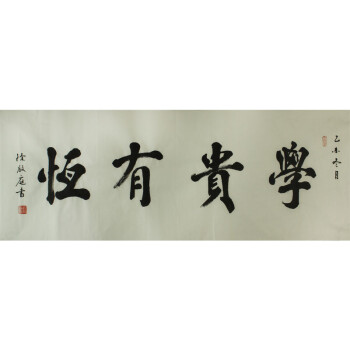 己未冬月
學貴有恆
啟庭書